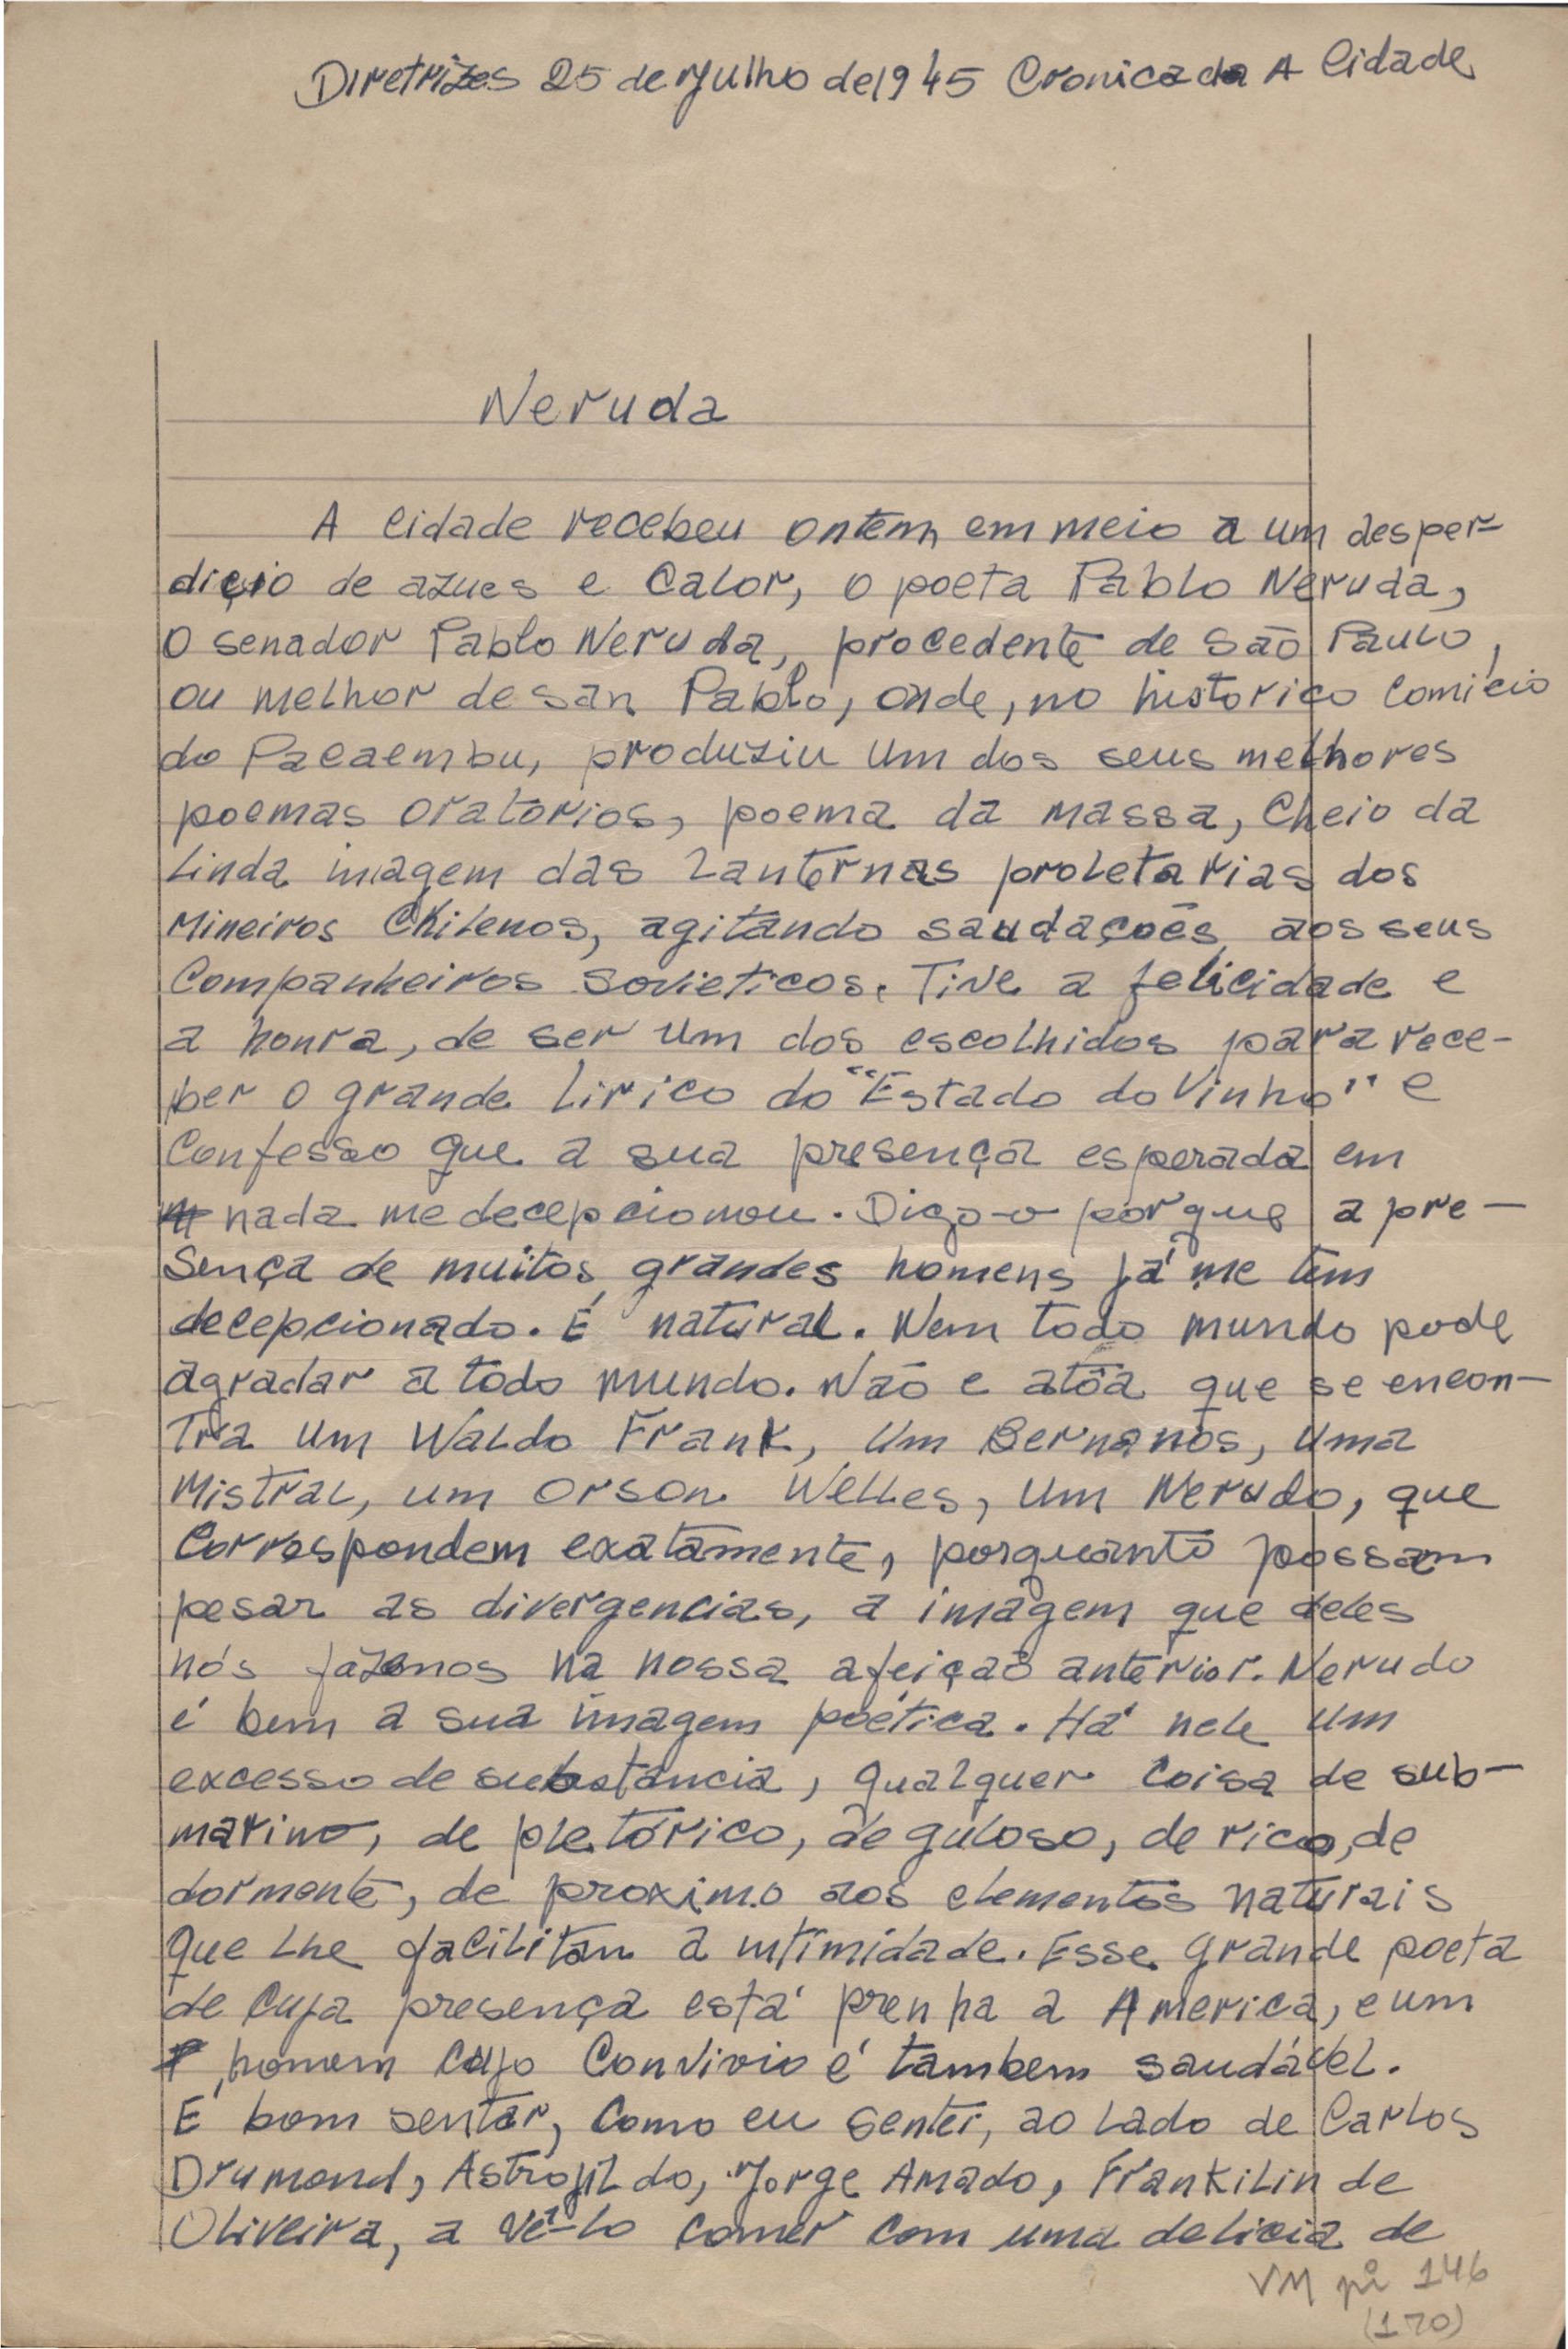 Diretrizes 25 de Julho de 1945 Cronica da A Cidade
Neruda
A cidade recebeu ontem, em meio a um desper-
diçio de azues e calor, o poeta Pablo Neruda,
o senador Pablo Neruda, procedente de São Paulo,
ou melhor de san Pablo, onde, no historico comicio
do Pacaembu, produziu um dos seus melhores
poemas oratorios, poema da massa, cheio da
linda imagem das lanternas proletarias dos
mineiros chilenos, agitando saudações aos seus
companheiros sovieticos. Tive a felicidade e
a honra, de ser um dos escolhidos para rece-
ber o grande lirico do "Estado do Vinho" e
confesso que a sua presença esperada em
nada me decepcionou. Digo-o porque a pre-
sença de muitos grandes homens já me tem
decepcionado. É natural. Nem todo mundo pode
agradar a todo mundo. Não e atôa que se encon-
tra um Waldo Frank, um Bernanos, uma
Mistral, um Orson Welles, um Nerudo, que
correspondem exatamente, porquanto possam
pesar as divergencias, a imagem que deles
nós fazemos na nossa afeição anterior. Nerudo
é bem a sua imagem poética. Há nele um
excesso de substância, qualquer coisa de sub-
marino, de pletórico, de guloso, de rico, de
dormente, de proximo aos elementos naturais
que lhe facilitan a intimidade. Esse grande poeta
de cuja presença está prenha a America, e um
homem cujo convivio é tambem saudável.
É bom sentar, como eu sentei, ao lado de Carlos
Drumond, Astrojildo, Jorge Amado, Frankilin de
Oliveira, a vê-lo comer com uma delicia de
VM pi 146
(170)